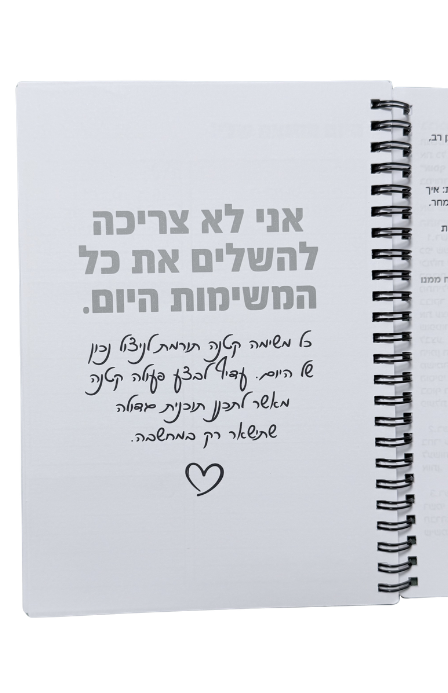 אני לא צריכה
להשלים את כל
המשימות היום.
כל משימה קטנה תורמת לניצול נכון
של היום. עדיף לבצע פעולה קטנה
מאשר לתכנן תוכנית גדולה
שתישאר רק במחשבה.
ן רב,
ת: איך
מחר.
ת
ח ממנו